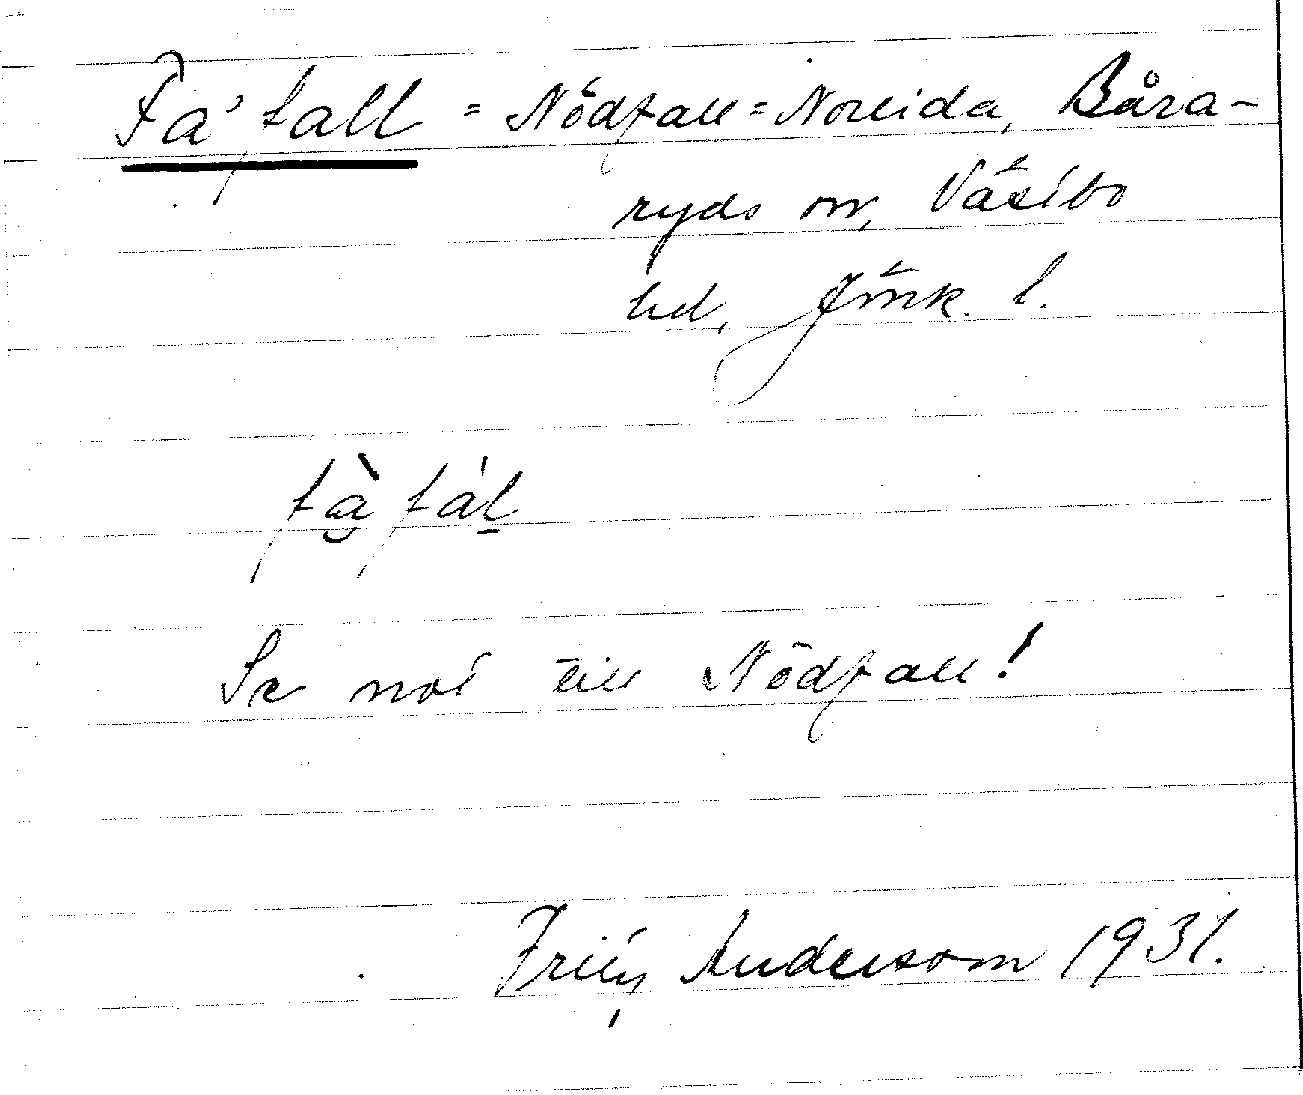 Fa'fall = Nödfall = Norlida, Båra-
ryds sn, Västbo
hd, Jönk. l.
fà fál
Se not till Nödfall!
Fritz Anderson 1931.